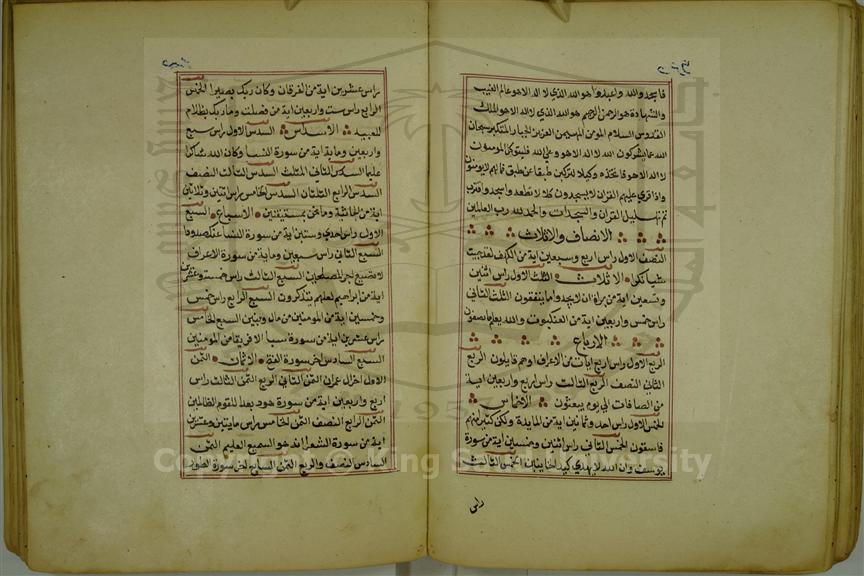 فاسجدوا لله واعبدوا هو الله الذي لا اله الا هو عالم الغيب
والشهادة هو الرحمن الرحيم هو الله الذي لا اله الا هو الملك
القدوس السلام المومن المهيمن العزيز الجبار المتكبر سبحان
الله عما يشركون الله لا اله الا هو وعلى الله فليتوكل المومنون
لا اله الا هو فاتخذه وكيلا لتركبن طبقا عن طبق فما لهم لا يومنون
واذا قرئ عليهم القران لا يسجدون كلا لا تطعه واسجد واقترب
تم تهليل القران والسجدات والحمد لله رب العالمين
الانصاف والاثلاث
النصف الاول راس اربع وسبعين اية من الكهف لقد جيت
شيا نكرا الاثلاث الثلث الاول راس اثنين
وتسعين اية من براة ان لا يجدوا ما ينفقون الثلث الثاني
راس خمس واربعين اية من العنكبوت والله يعلم ما تصنعون
الارباع
الربع الاول راس اربع ايات من الاعراف او هم قايلون الربع
الثاني النصف الربع الثالث راس اربع واربعين اية
من الصافات الى يوم يبعثون الاخماس
الخمس الاول راس احد وثمانين اية من المايدة ولكن كثيرا منهم
فاسقون الخمس الثاني راس اثنان وخمسين اية من سورة
يوسف وان الله لا يهدي كيد الخاينين الخمس الثالث
راس
راس عشرين اية من الفرقان وكان ربك بصيرا الخمس
الرابع راس ست واربعين اية من فصلت وما ربك بظلام
للعبيد الاسداس السدس الاول راس سبع
واربعين وماية اية من سورة النسا وكان الله شاكرا
عليما السدس الثاني الثلث السدس الثالث النصف
السدس الرابع الثلثان السدس الخامس راس اثنين وثلاثين
اية من الجاثية وما نحن بمستيقنين الاسباع السبع
الاول راس احدى وستين اية من سورة النسا عنك صدودا
السبع الثاني راس سبعين وماية من سورة الاعراف
لا نضيع اجر المصلحين السبع الثالث راس خمس وعشرين
اية من ابراهيم لعلهم يتذكرون السبع الرابع راس خمس
وخمسين اية من المومنين من مال وبنين السبع الخامس
راس عشرين اية من سورة سبا الا فريقا من المومنين
السبع السادس اخر سورة الفتح الاثمان الثمن
الاول اخر ال عمران الثمن الثاني الربع الثمن الثالث راس
اربع واربعين اية من سورة هود بعدا للقوم الظالمين
الثمن الرابع النصف الثمن الخامس راس مايتين وعشرين
اية من سورة الشعرا انه هو السميع العليم الثمن
السادس النصف والربع الثمن السابع اخر سورة الطور
Copyright © King Saud University
1957